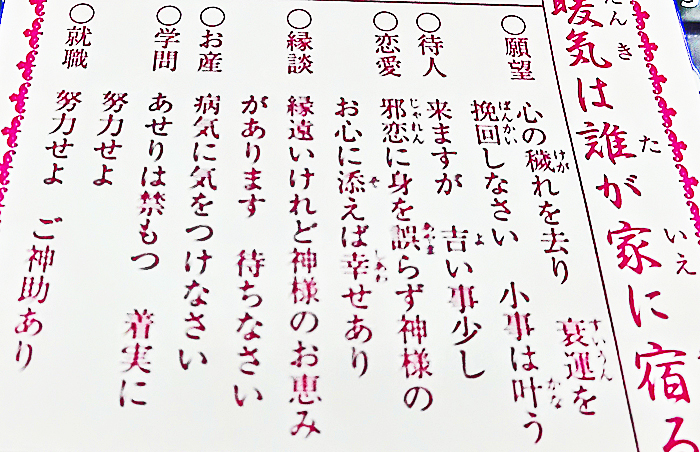 暖気は誰が家に宿る
○願望 心の穢れを去り 衰運を
挽回しなさい 小事は叶う
○待人 来ますが 吉い事少し
○恋愛 邪恋に身を誤らず神様の
お心に添えば幸せあり
○縁談 縁遠いけれど神様のお恵み
があります 待ちなさい
○お産 病気に気をつけなさい
○学問 あせりは禁もつ 着実に
努力せよ
○就職 努力せよ ご神助あり